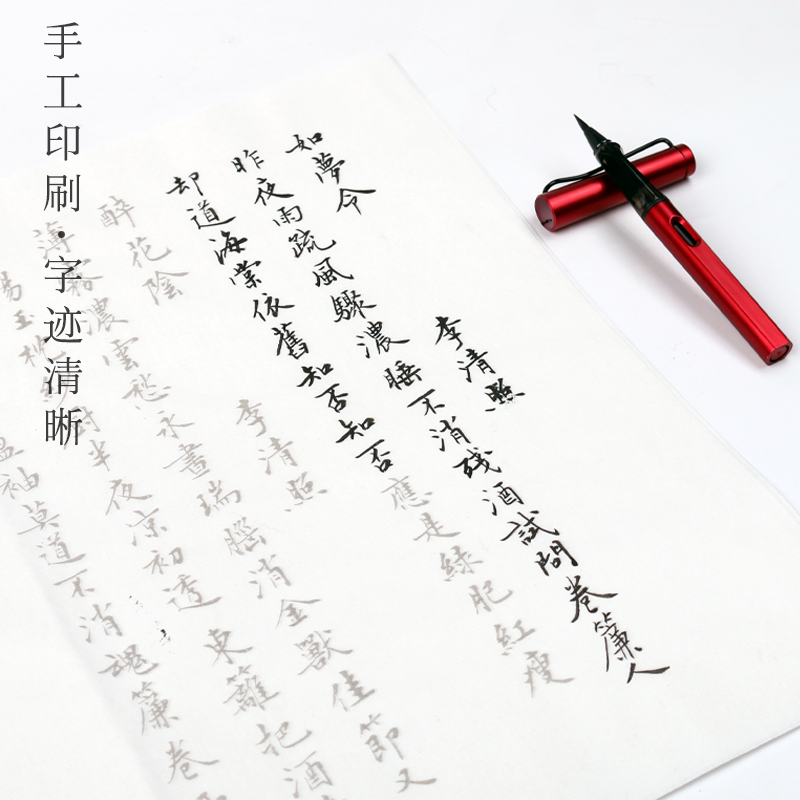 手工印刷·字迹清晰
如夢令 李清照
昨夜雨疏風驟濃睡不消残酒試問卷簾人
却道海棠依舊知否知否應是綠肥紅瘦
醉花陰 李清照
薄霧濃雲愁永晝瑞腦消金獸佳節又
玉枕紗厨半夜凉初透東籬把酒
盈袖莫道不消魂簾卷